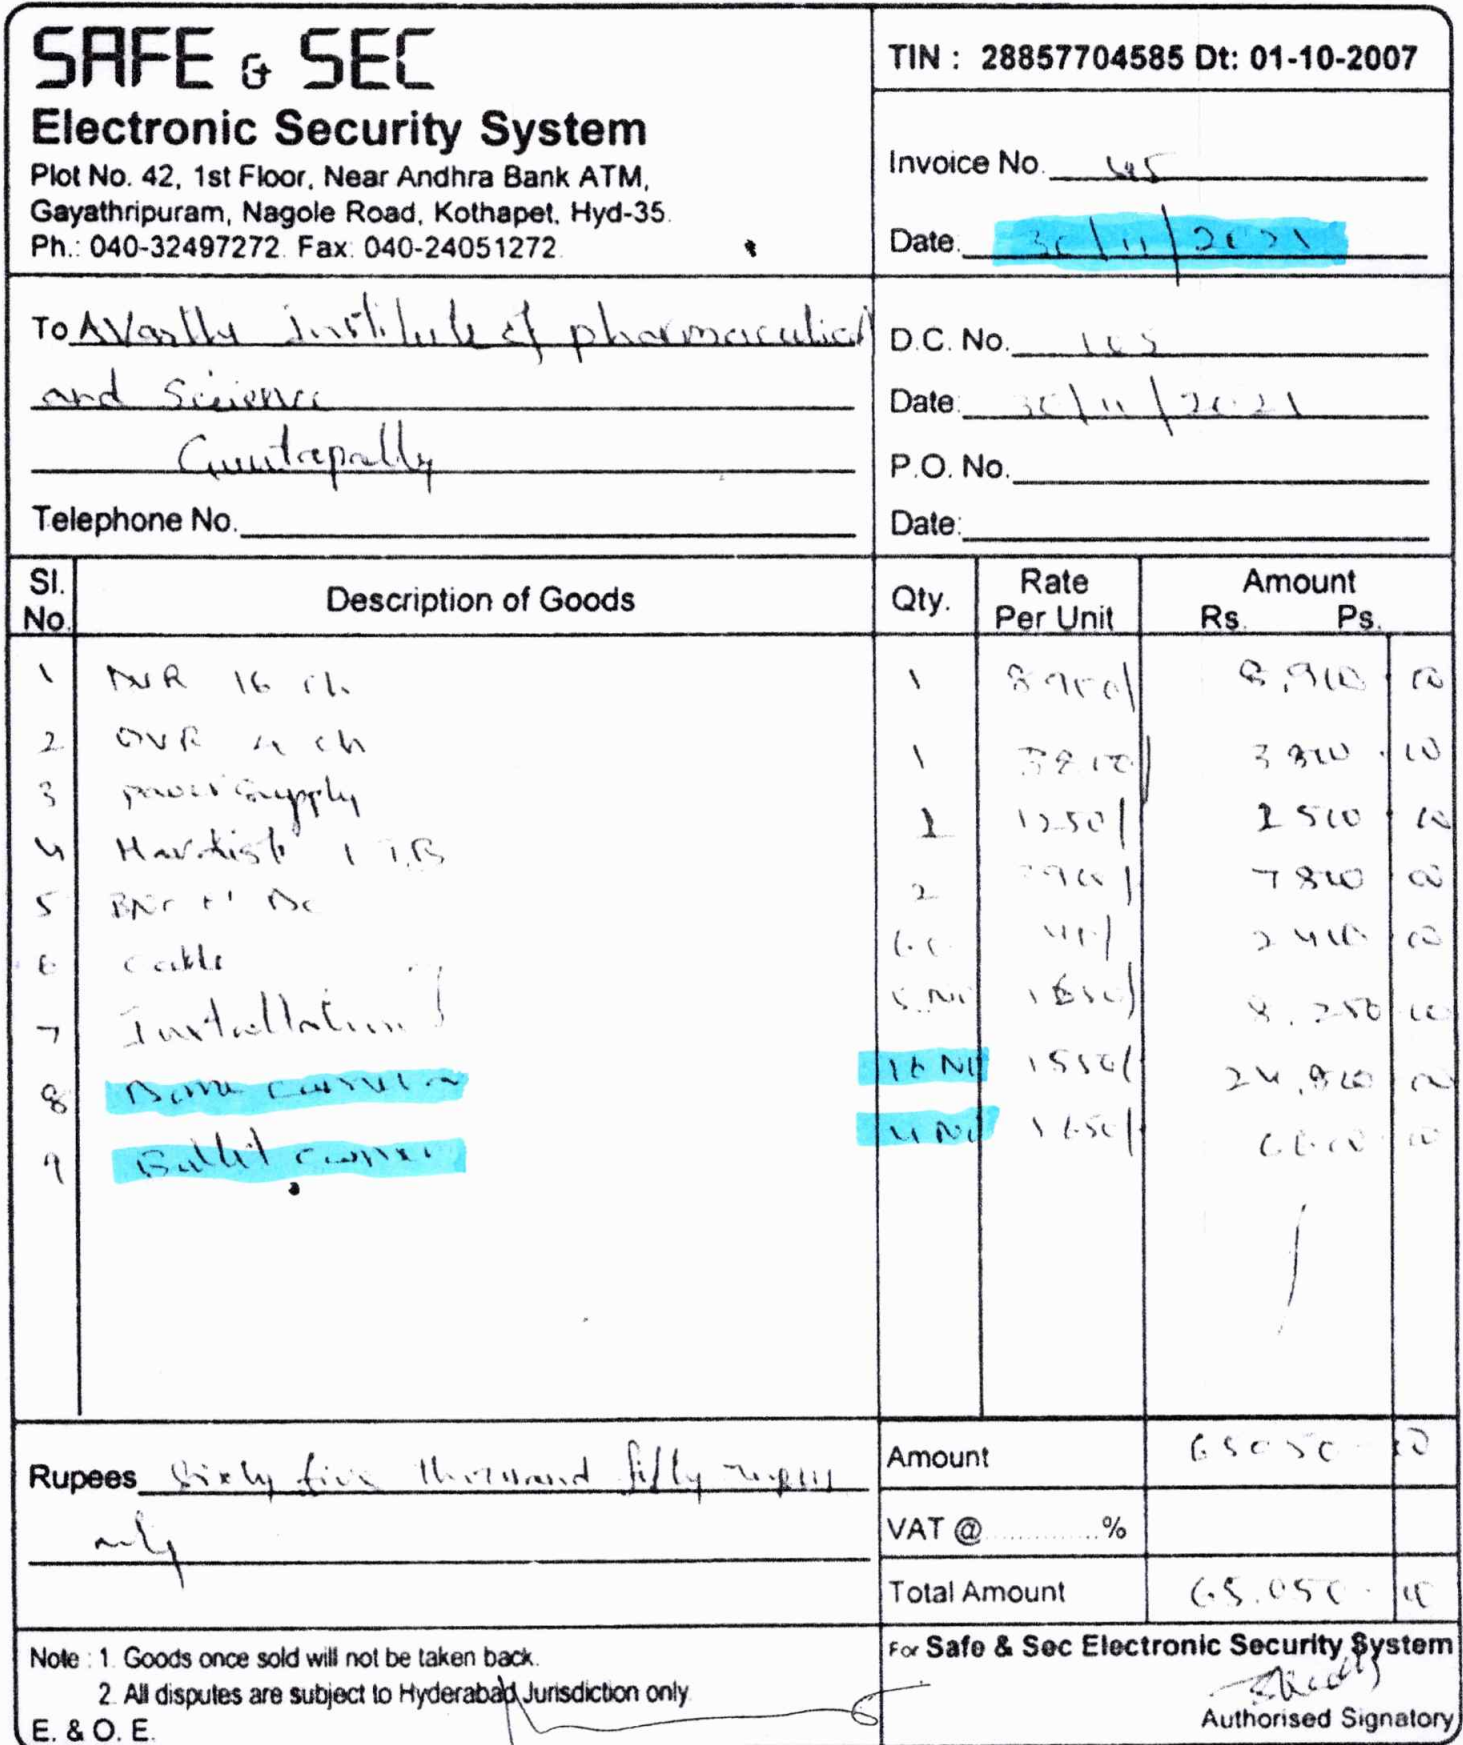 SAFE & SEC
Electronic Security System
Plot No. 42, 1st Floor, Near Andhra Bank ATM,
Gayathripuram, Nagole Road, Kothapet, Hyd-35.
Ph.: 040-32497272. Fax: 040-24051272.
TIN : 28857704585 Dt: 01-10-2007
Invoice No.
Date. 30/11/2021
To Institute of pharmaceutical
and
Guntapally
Telephone No.
D.C. No.
Date: 30/11/2021
P.O. No.
Date:
Sl. No. Description of Goods Qty. Rate Per Unit Amount Rs. Ps.
1 16 ch. 1 8900/ 8,900 00
2 DVR 4 ch 1 3800 3800 00
3 power supply 1250/ 2500 00
4 1 TB 2 3900/ 7800 00
5 40/ 2400 00
6 cable 5 No 1650/ 8,250 00
7 Installation
8 Dome camera 16 No 1550/ 24,800 00
9 Bullet 4 No 1650/ 6600 00
Rupees Sixty five thousand fifty rupees
only
Amount 65050 00
VAT @ ..............%
Total Amount 65,050 00
Note : 1. Goods once sold will not be taken back.
2. All disputes are subject to Hyderabad Jurisdiction only
E. & O. E.
For Safe & Sec Electronic Security System
Authorised Signatory